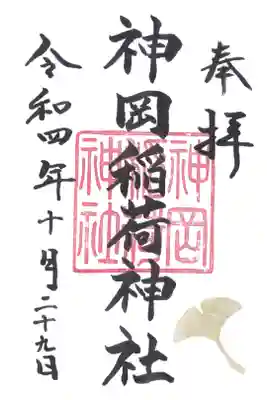 奉拝
神岡稲荷神社
神岡
稲荷
神社
令和四年十月二十九日